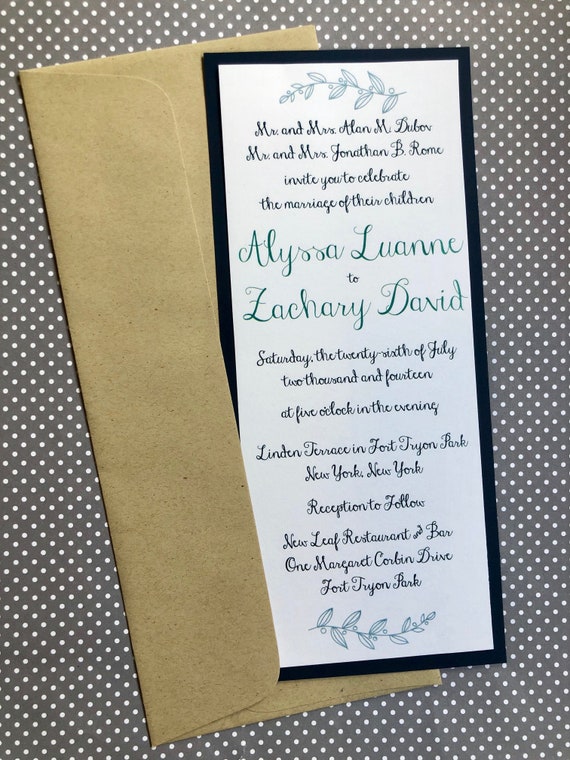 Mr. and Mrs. Alan M. Dubov
Mr. and Mrs. Jonathan B. Rome
invite you to celebrate
the marriage of their children
Alyssa Luanne
to
Zachary David
Saturday, the twenty-sixth of July
two thousand and fourteen
at five o'clock in the evening
Linden Terrace in Fort Tryon Park
New York, New York
Reception to Follow
New Leaf Restaurant & Bar
One Margaret Corbin Drive
Fort Tryon Park